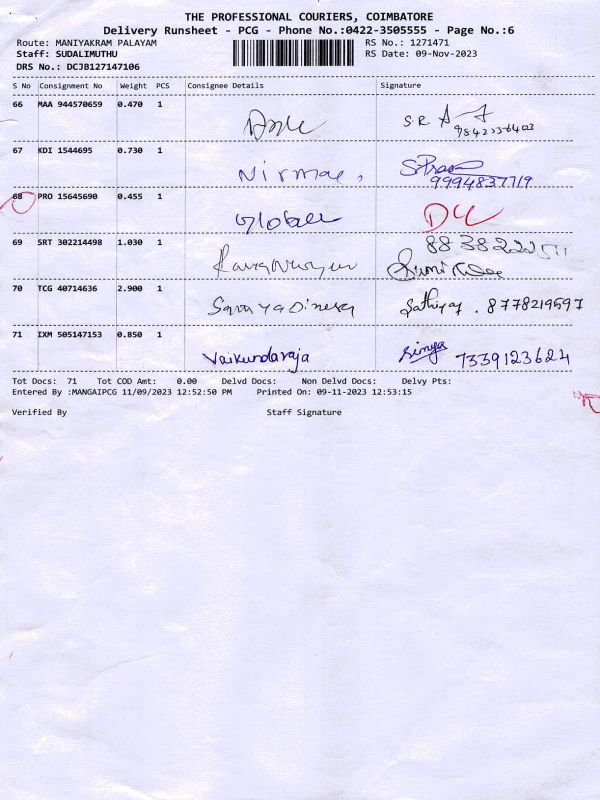 THE PROFESSIONAL COURIERS, COIMBATORE
Delivery Runsheet - PCG - Phone No.:0422-3505555 - Page No.:6
Route: MANIYAKRAM PALAYAM RS No.: 1271471
Staff: SUDALIMUTHU RS Date: 09-Nov-2023
DRS No.: DCJB127147106
S No Consignment No Weight PCS Consignee Details Signature
66 MAA 944570659 0.470 1 S.R.
67 KDI 1544695 0.730 1 Nirmal,
9994837719
68 PRO 15645690 0.455 1 Global DC
69 SRT 302214498 1.030 1
70 TCG 40714636 2.900 1 Saranya Dinesh Sathiya . 8778219597
71 IXM 505147153 0.850 1 Vaikundaraja 7339123624
Tot Docs: 71 Tot COD Amt: 0.00 Delvd Docs: Non Delvd Docs: Delvy Pts:
Entered By :MANGAIPCG 11/09/2023 12:52:50 PM Printed On: 09-11-2023 12:53:15
Verified By Staff Signature